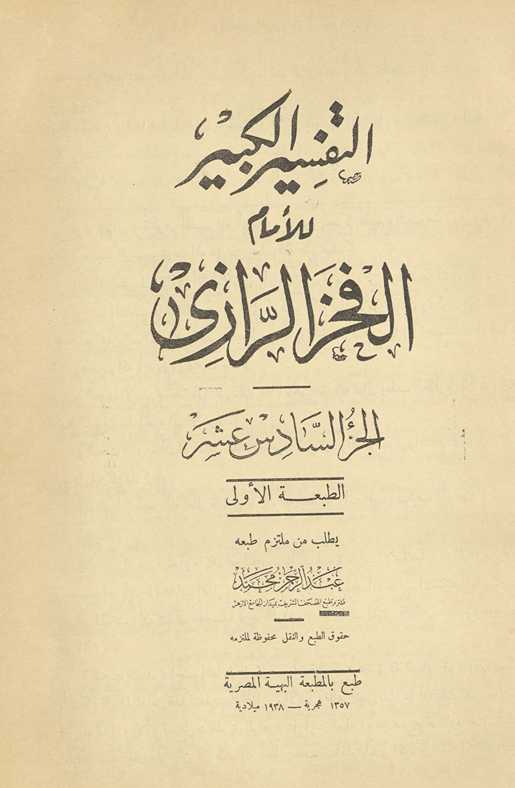 التفسير الكبير
للأمام
الفخر الرازي
الجزء السادس عشر
الطبعة الأولى
يطلب من ملتزم طبعه
عبد الرحمن محمد
بميدان الجامع الأزهر
حقوق الطبع والنقل محفوظة لملتزمه
طبع بالمطبعة البهية المصرية
١٣٥٧ هجرية — ١٩٣٨ ميلادية